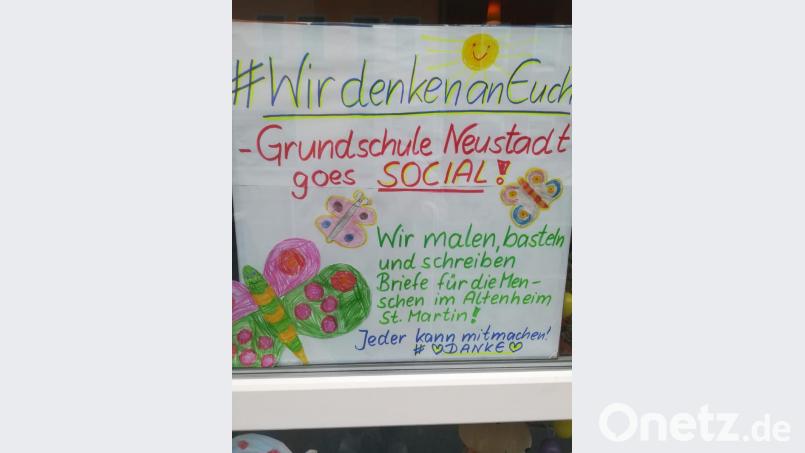 #WirdenkenanEuch
-Grundschule Neustadt
goes SOCIAL!
Wir malen, basteln
und schreiben
Briefe für die Men-
schen im Altenheim
St. Martin!
Jeder kann mitmachen!
# DANKE
Onetz.de